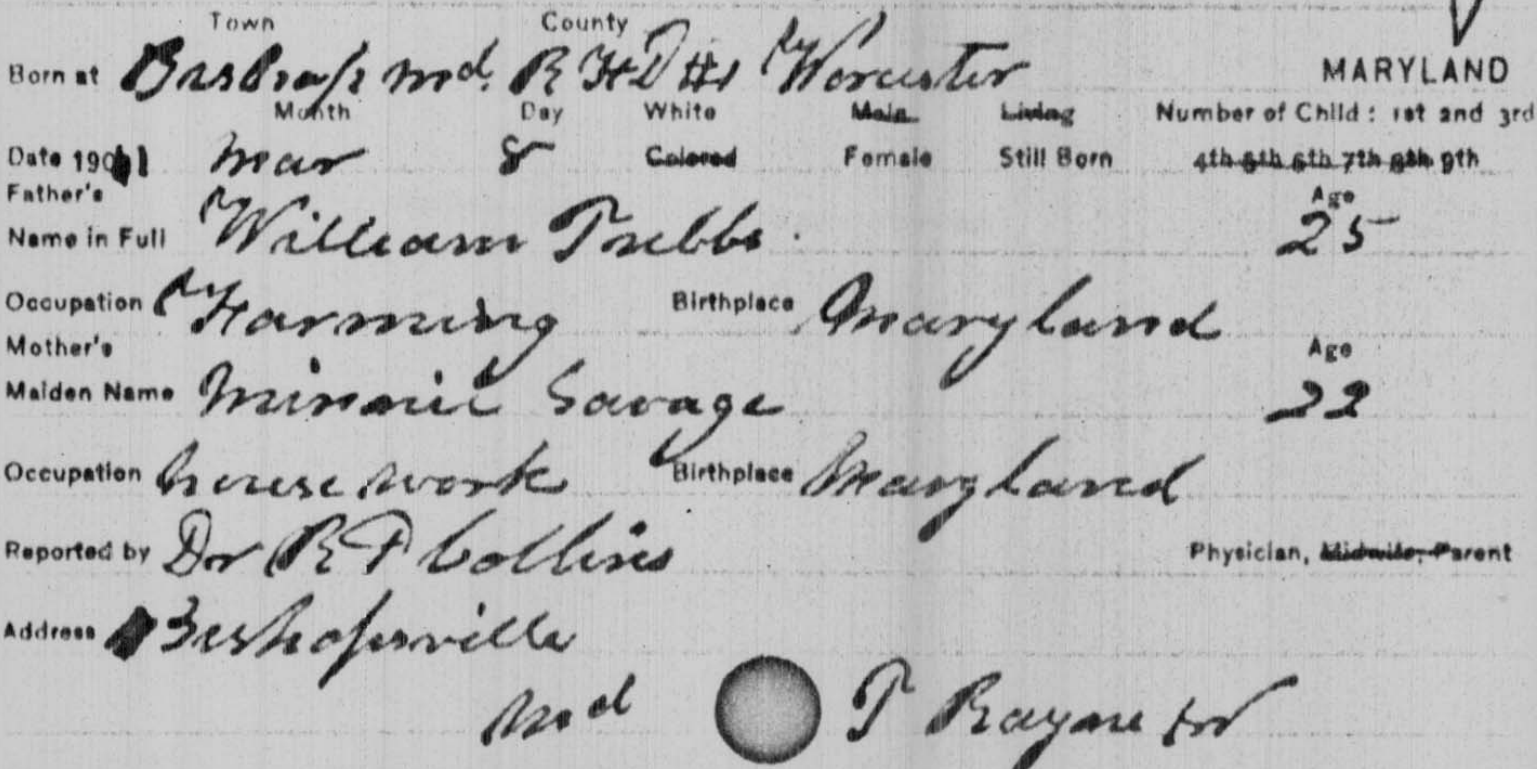 Town County
Born at Bishop Md. R F D #1 Worcester MARYLAND
Month Day White Male Living Number of Child: 1st and 3rd
Date 1901 Mar 8 Colored Female Still Born 4th 5th 6th 7th 8th 9th
Father's Age
Name in Full William Trebbs 25
Occupation Farming Birthplace Maryland
Mother's Age
Maiden Name Minnie Savage 22
Occupation house work Birthplace Maryland
Reported by Dr R P Collins Physician, Midwife, Parent
Address Bishopsville
Md T Rayne